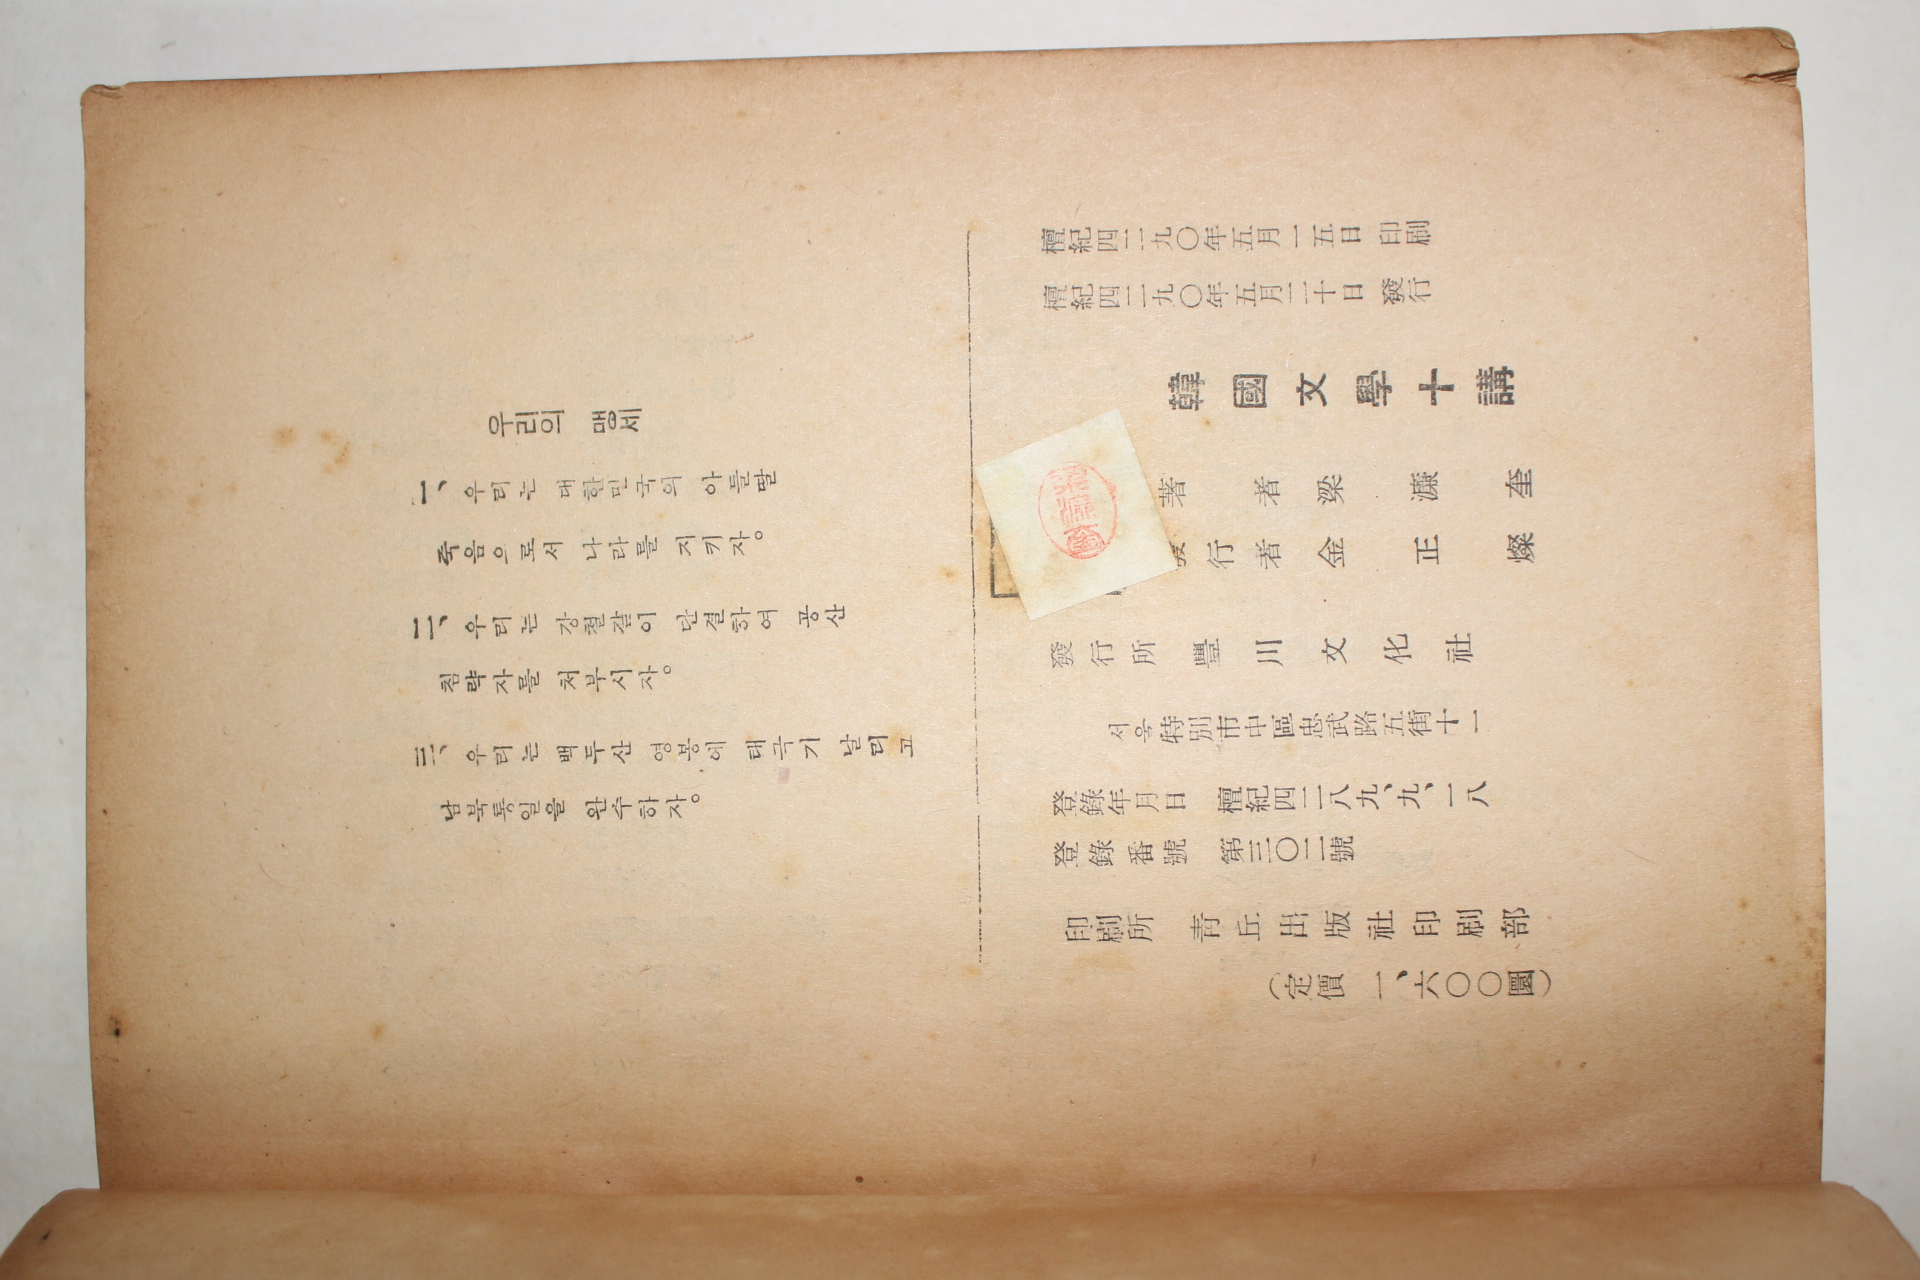 우리의 맹세
一、우리는 대한민국의 아들딸
죽음으로서 나라를 지키자。
二、우리는 강철같이 단결하여 공산
침략자를 처부시자。
三、우리는 백두산 영봉에 태극기 날리고
남북통일을 완수하자。
檀紀四二九〇年五月一五日 印刷
檀紀四二九〇年五月二十日 發行
韓國文學十講
著者 梁濂奎
行者 金正燦
發行所 豐川文化社
서울特別市中區忠武路五街十一
登錄年月日 檀紀四二八九、九、一八
登錄番號 第三〇二號
印刷所 靑丘出版社印刷部
(定價 一、六〇〇圜)